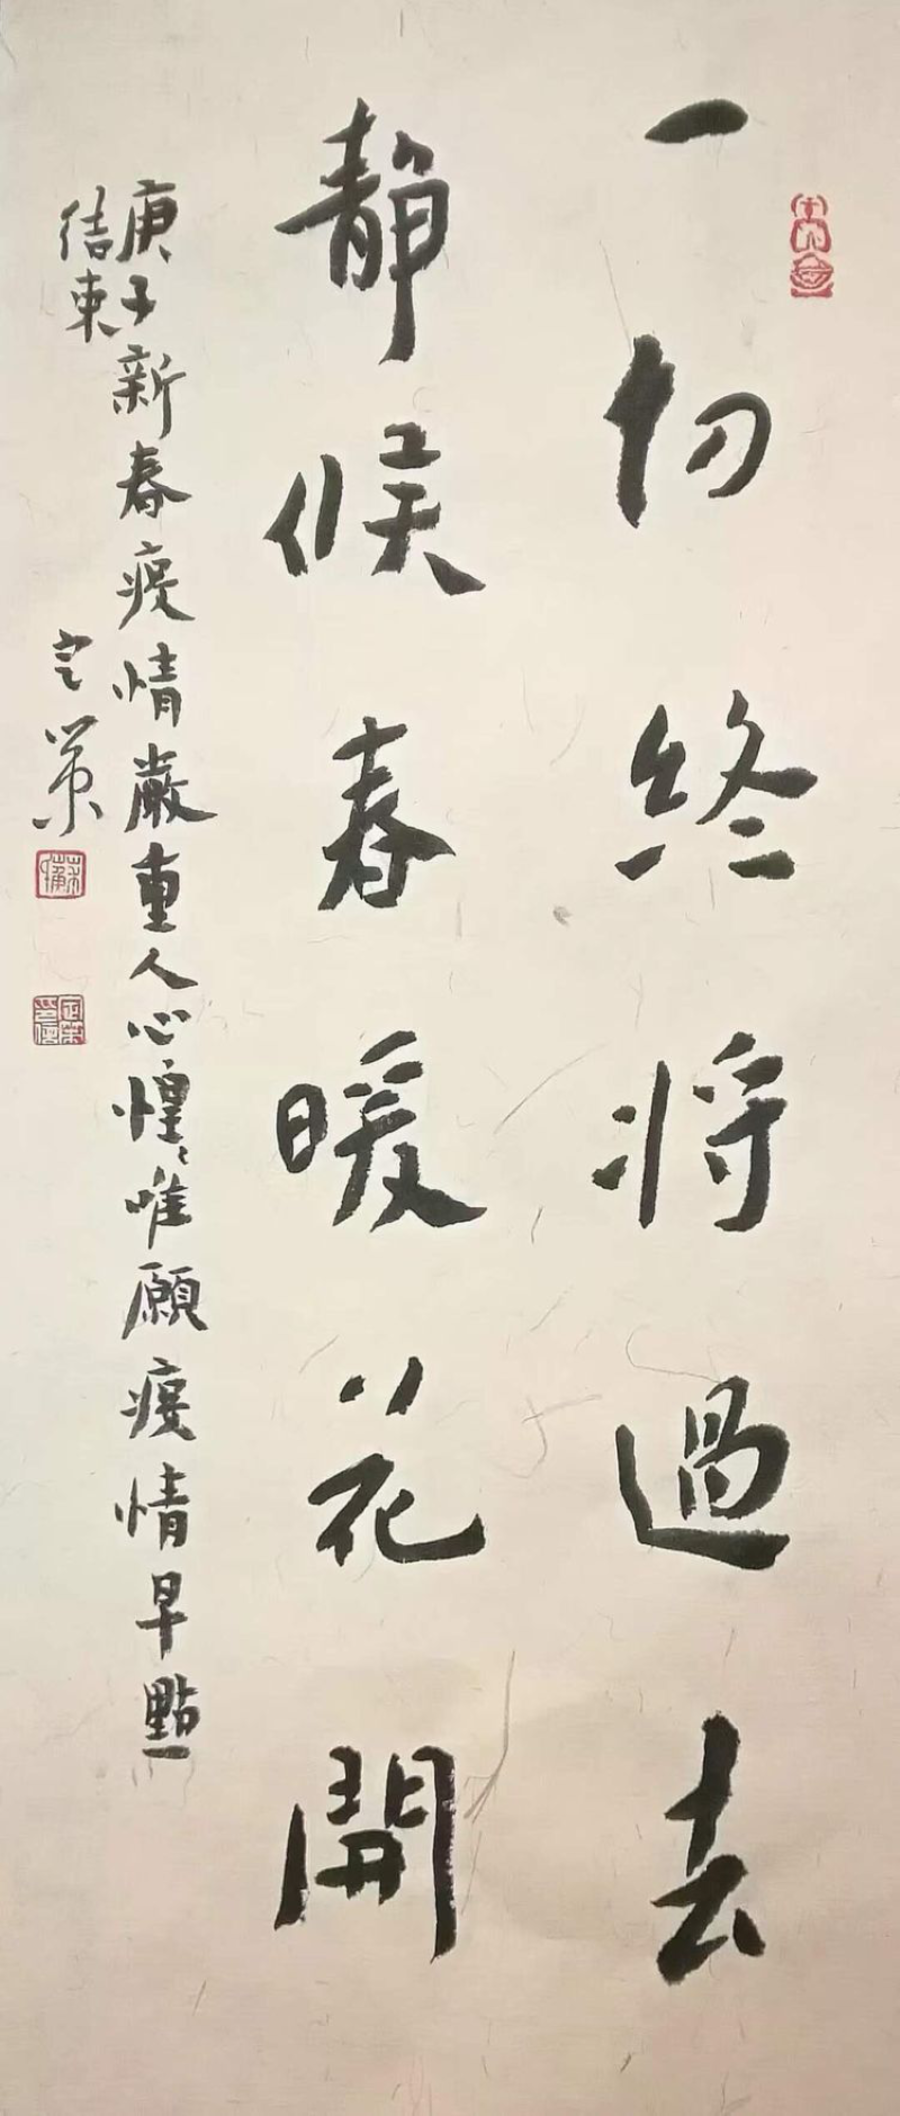 一切終將過去
靜候春暖花開
庚子新春疫情嚴重人心惶惶唯願疫情早點
结束